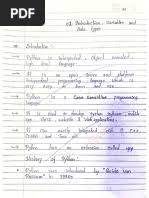 01 Introduction, Variables and
Data Types
Introduction :
Python is Interpreted, Object oriented,
high level language.
It is an open source and platform
independent programming language which is
Python is a Case Sensitive, programming
language
It is used to develop System software,
websites & web applications.
It can easily integrated with C, C++,
COBRA and Java.
Python has an extension called .py
History of Python :
Python was developed by "Guido Van
Rossum" in 1980s